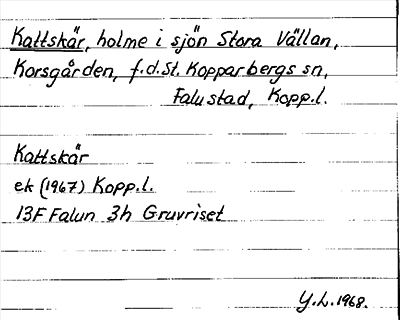 Kattskär, holme i sjön Stora Vällan,
Korsgården, f.d. St. Kopparbergs sn,
Falu stad, Kopp.l.
Kattskär
ek (1967) Kopp.l.
13F Falun 3h Gruvriset
Y.L. 1968.